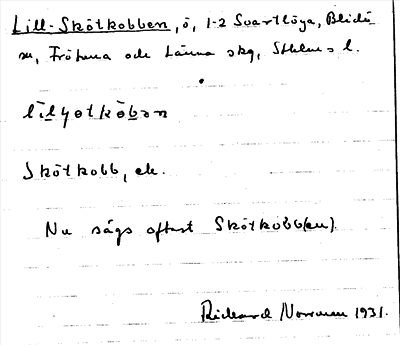 Lill-Skötkobben, ö, 1-2 Svartlöga, Blidö
sn, Frötuna och Länna skg, Sthlms l.
Skötkobb, ek.
Nu sägs oftast Skötkobb(en).
Rickard Norman 1931.